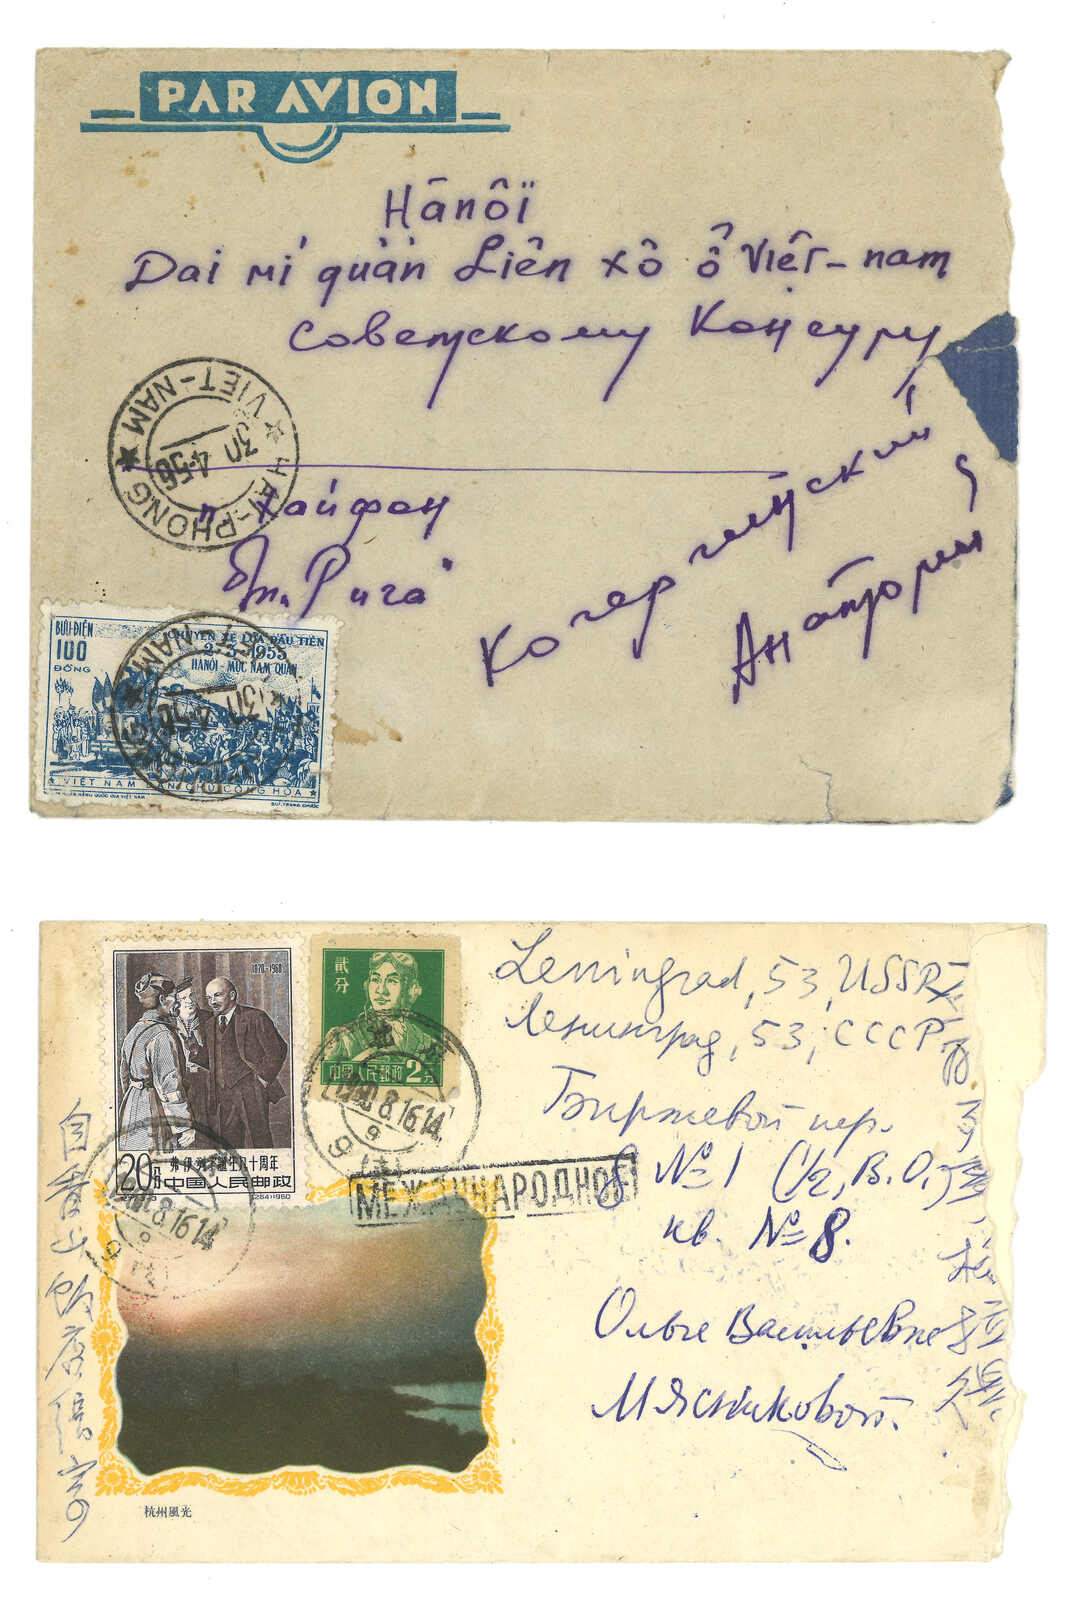 PAR AVION
Hānôï
Dai mi quản Liên xô ở Việt-nam
Советскому Консулу
HAI-PHONG ★ VIET-NAM ★
30 4-56
п Хайфон
Рига"
Анатолий
BƯU-ĐIỆN
100
ĐỒNG
CHUYẾN XE LỬA ĐẦU TIÊN
2-3-1955
HÀNỘI - MỤC NAM QUAN
★ VIỆT NAM DÂN CHỦ CỘNG HÒA ★
1870-1960
20分
弗·伊·列宁誕生九十周年
中国人民邮政
(264)1960
贰分
中国人民邮政 2分
8.16.14
8.16.14
МЕЖДУНАРОДНОЕ
Leningrad, 53, USSR
Ленинград, 53, СССР.
Биржевой пер.
№1 (1/2, В.О.)
кв. №8.
Ольге Васильевне
Мясниковой.
杭州風光